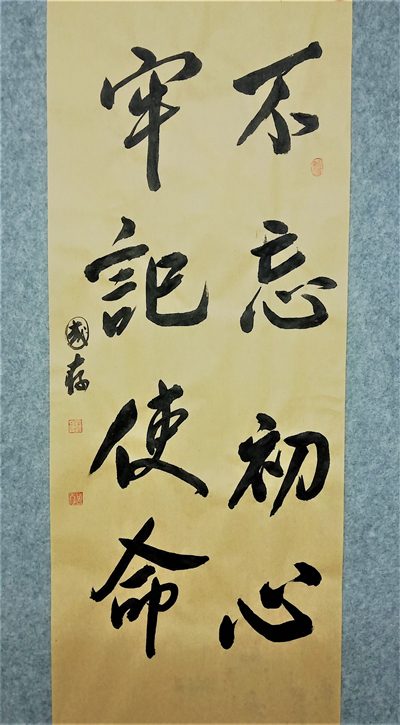 不忘初心
牢記使命
國存